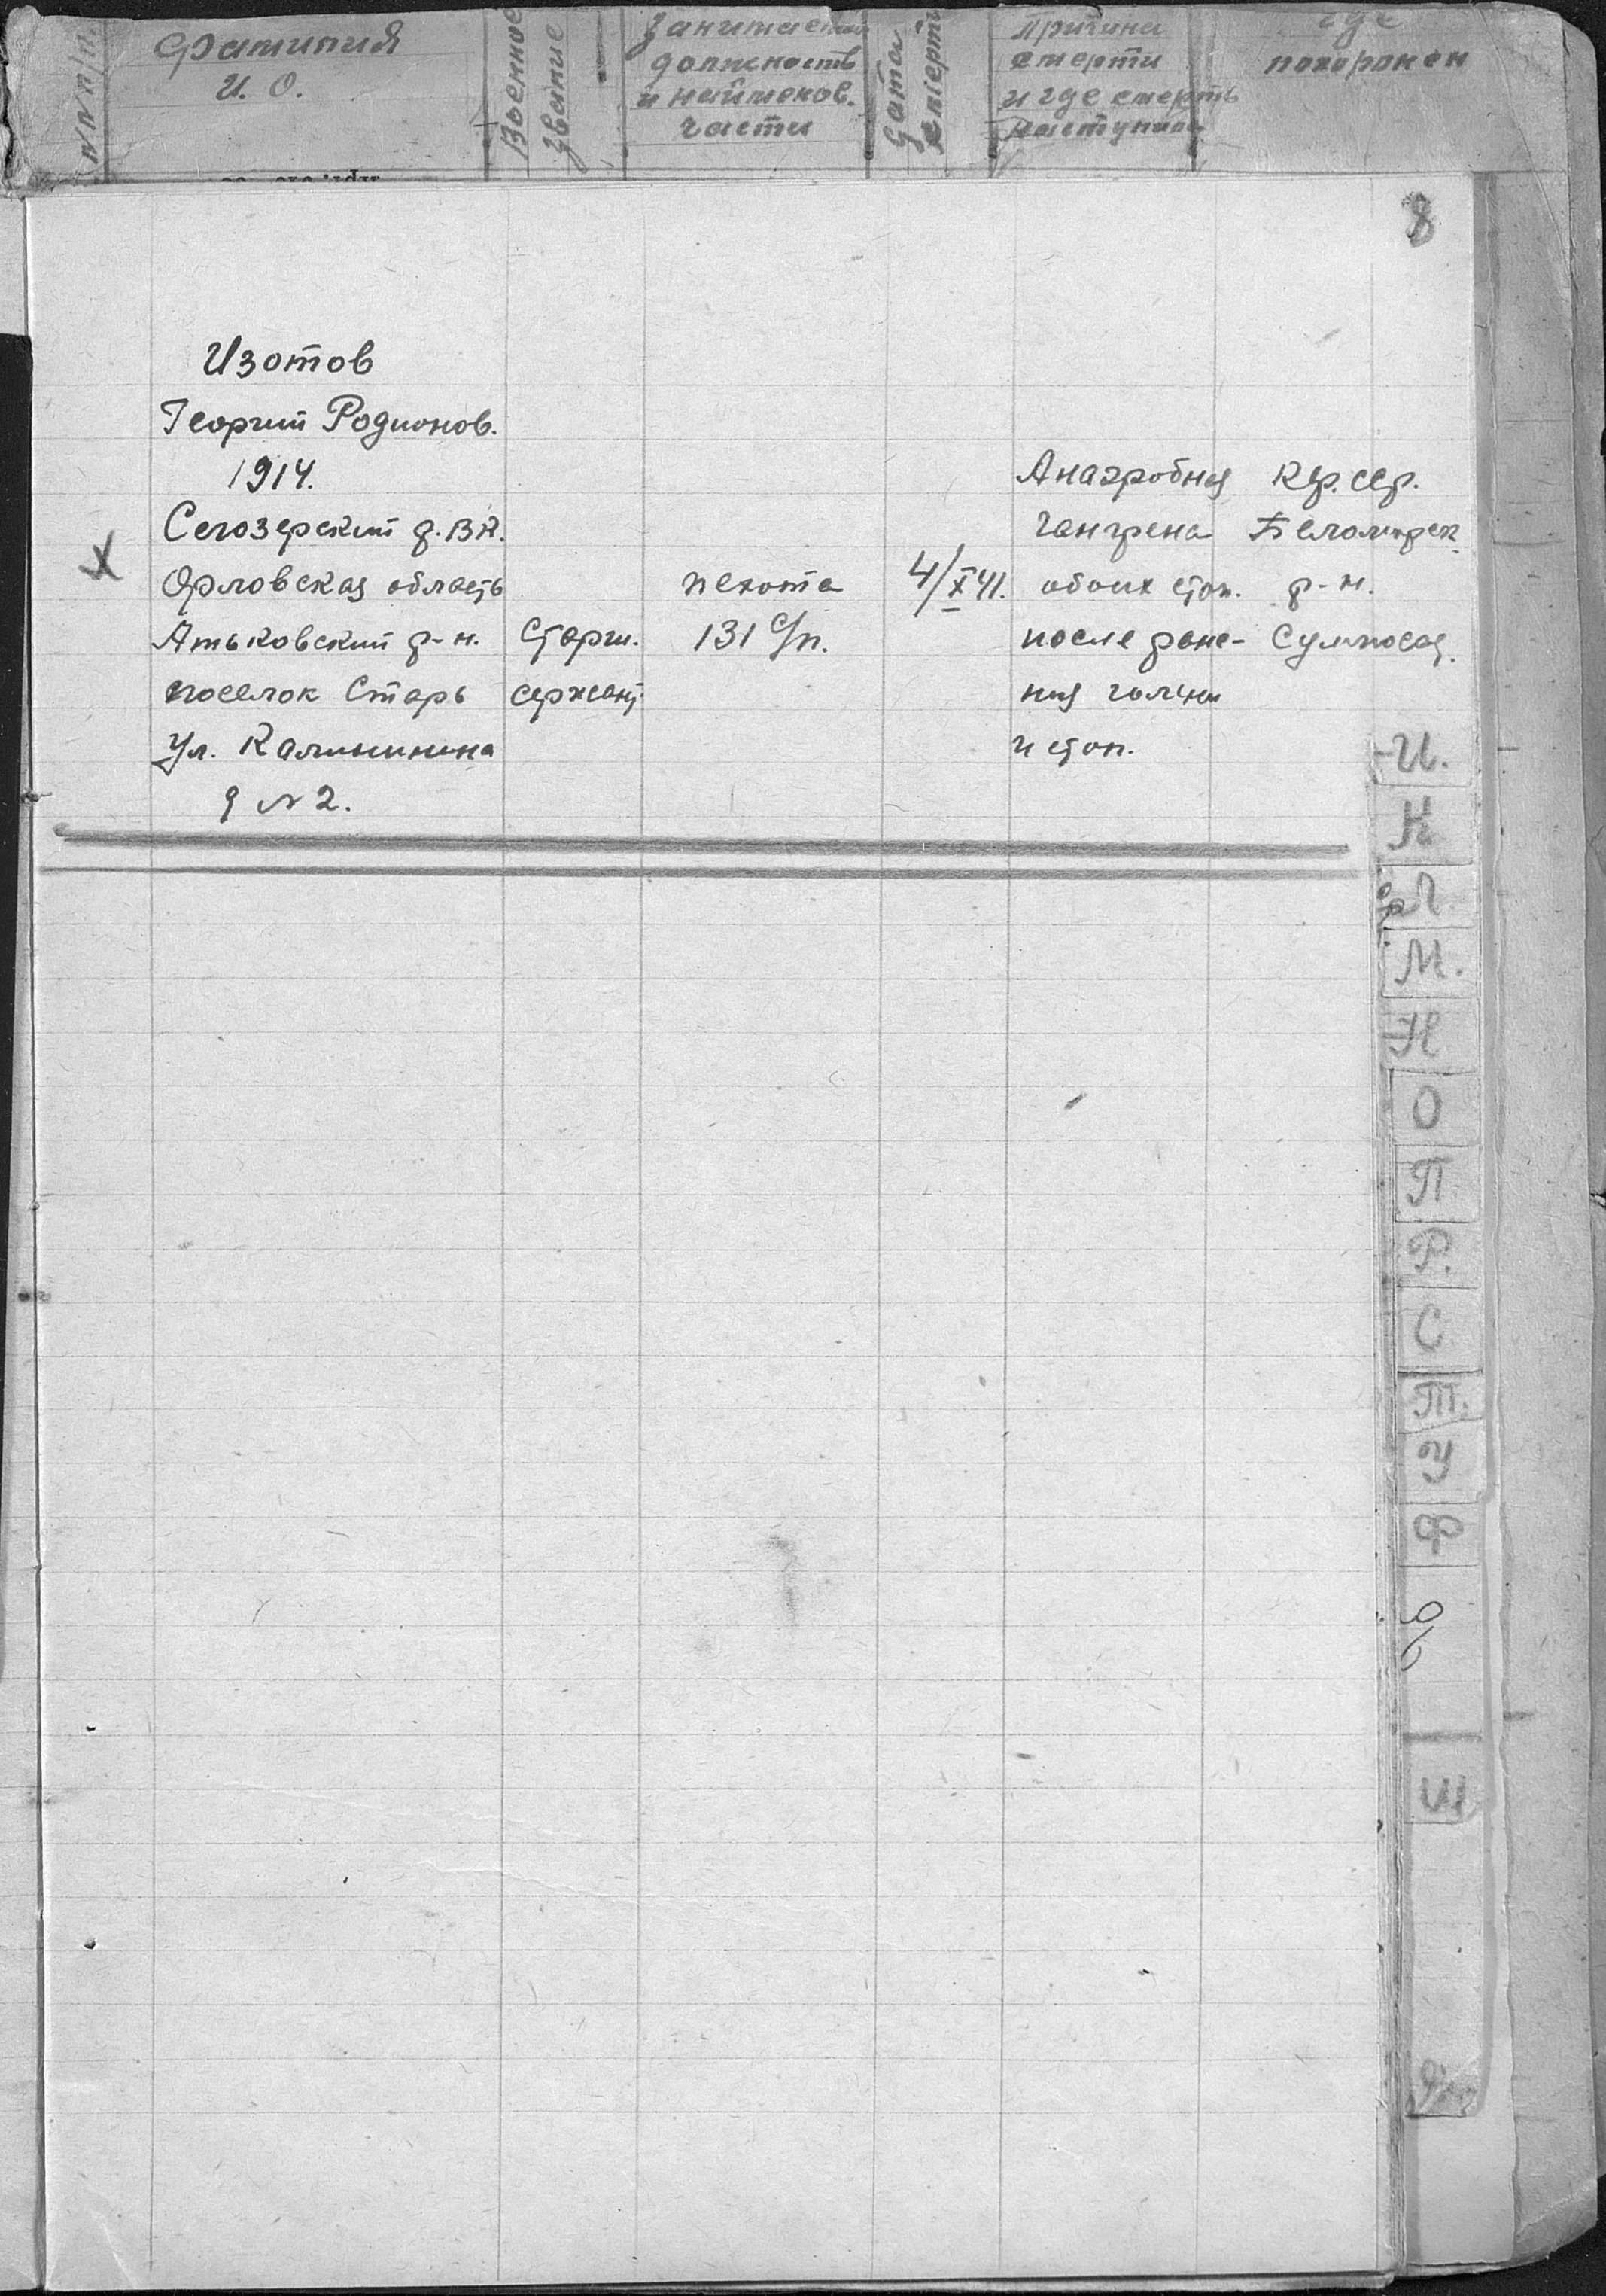 №№ п/п.
Фамилия
И. О.
Военное
звание
Занимаемая
должность
и наименов.
части
Дата
смерти
Причина
смерти
и где смерть
наступила
где
похоронен
8
Изотов
Георгий Родионов.
1914.
Сегозерский р.ВК.
Орловская область
Атьковский р-н.
поселок Старь
ул. Калинина
д № 2.
Х
Старш.
сержант
пехота
131 с/п.
4/X 41.
Анаэробная
гангрена
обоих стоп.
после ране-
ния голени
и стоп.
Кар. сер.
Беломорск.
р-н.
Сумпосад.
И.
К
Л
М.
Н
О
П
Р.
С
Т.
У
Ф
Щ